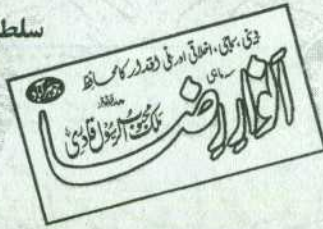 سلط
دینی، سماجی، اخلاقی اور ملی اقدار کا محافظ
سہ ماہی
انوارِ رضا
جوہر آباد
ملک محبوب الرسول قادری